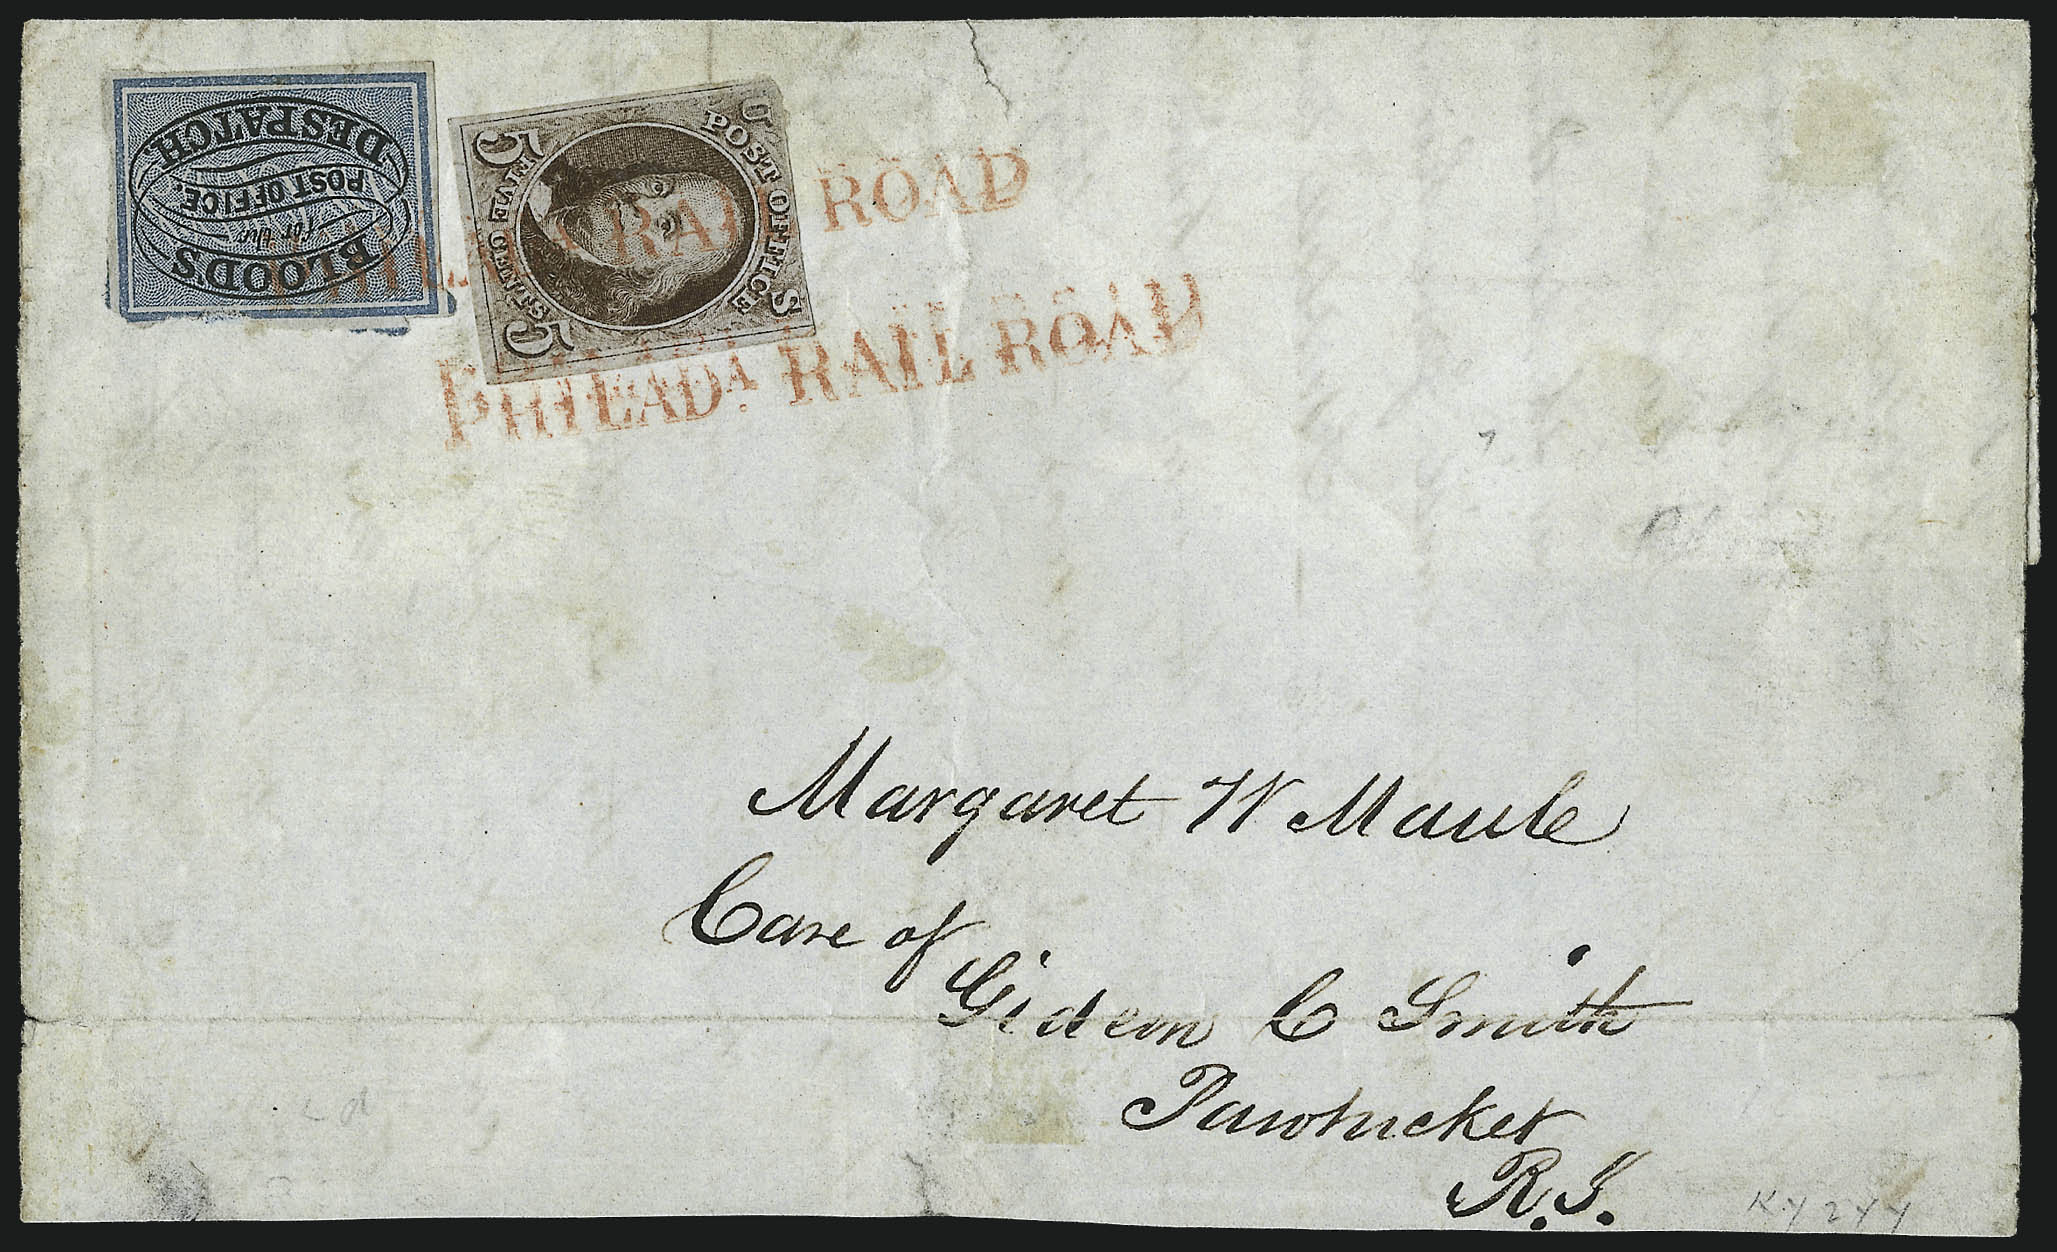 BLOOD'S
for the
POST OFFICE.
DESPATCH.
U S
POST OFFICE
FIVE CENTS
5 5
PHILADA RAIL ROAD
PHILADA. RAIL ROAD
Margaret W Maule
Care of
Gideon C Smith
Pawtucket
R.I.